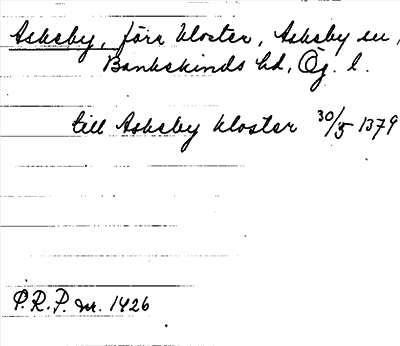 Askeby, förr kloster, Askeby sn,
Bankekinds hd, Ög. l.
till Askeby kloster 30/5 1379
P.R.P. nr. 1426